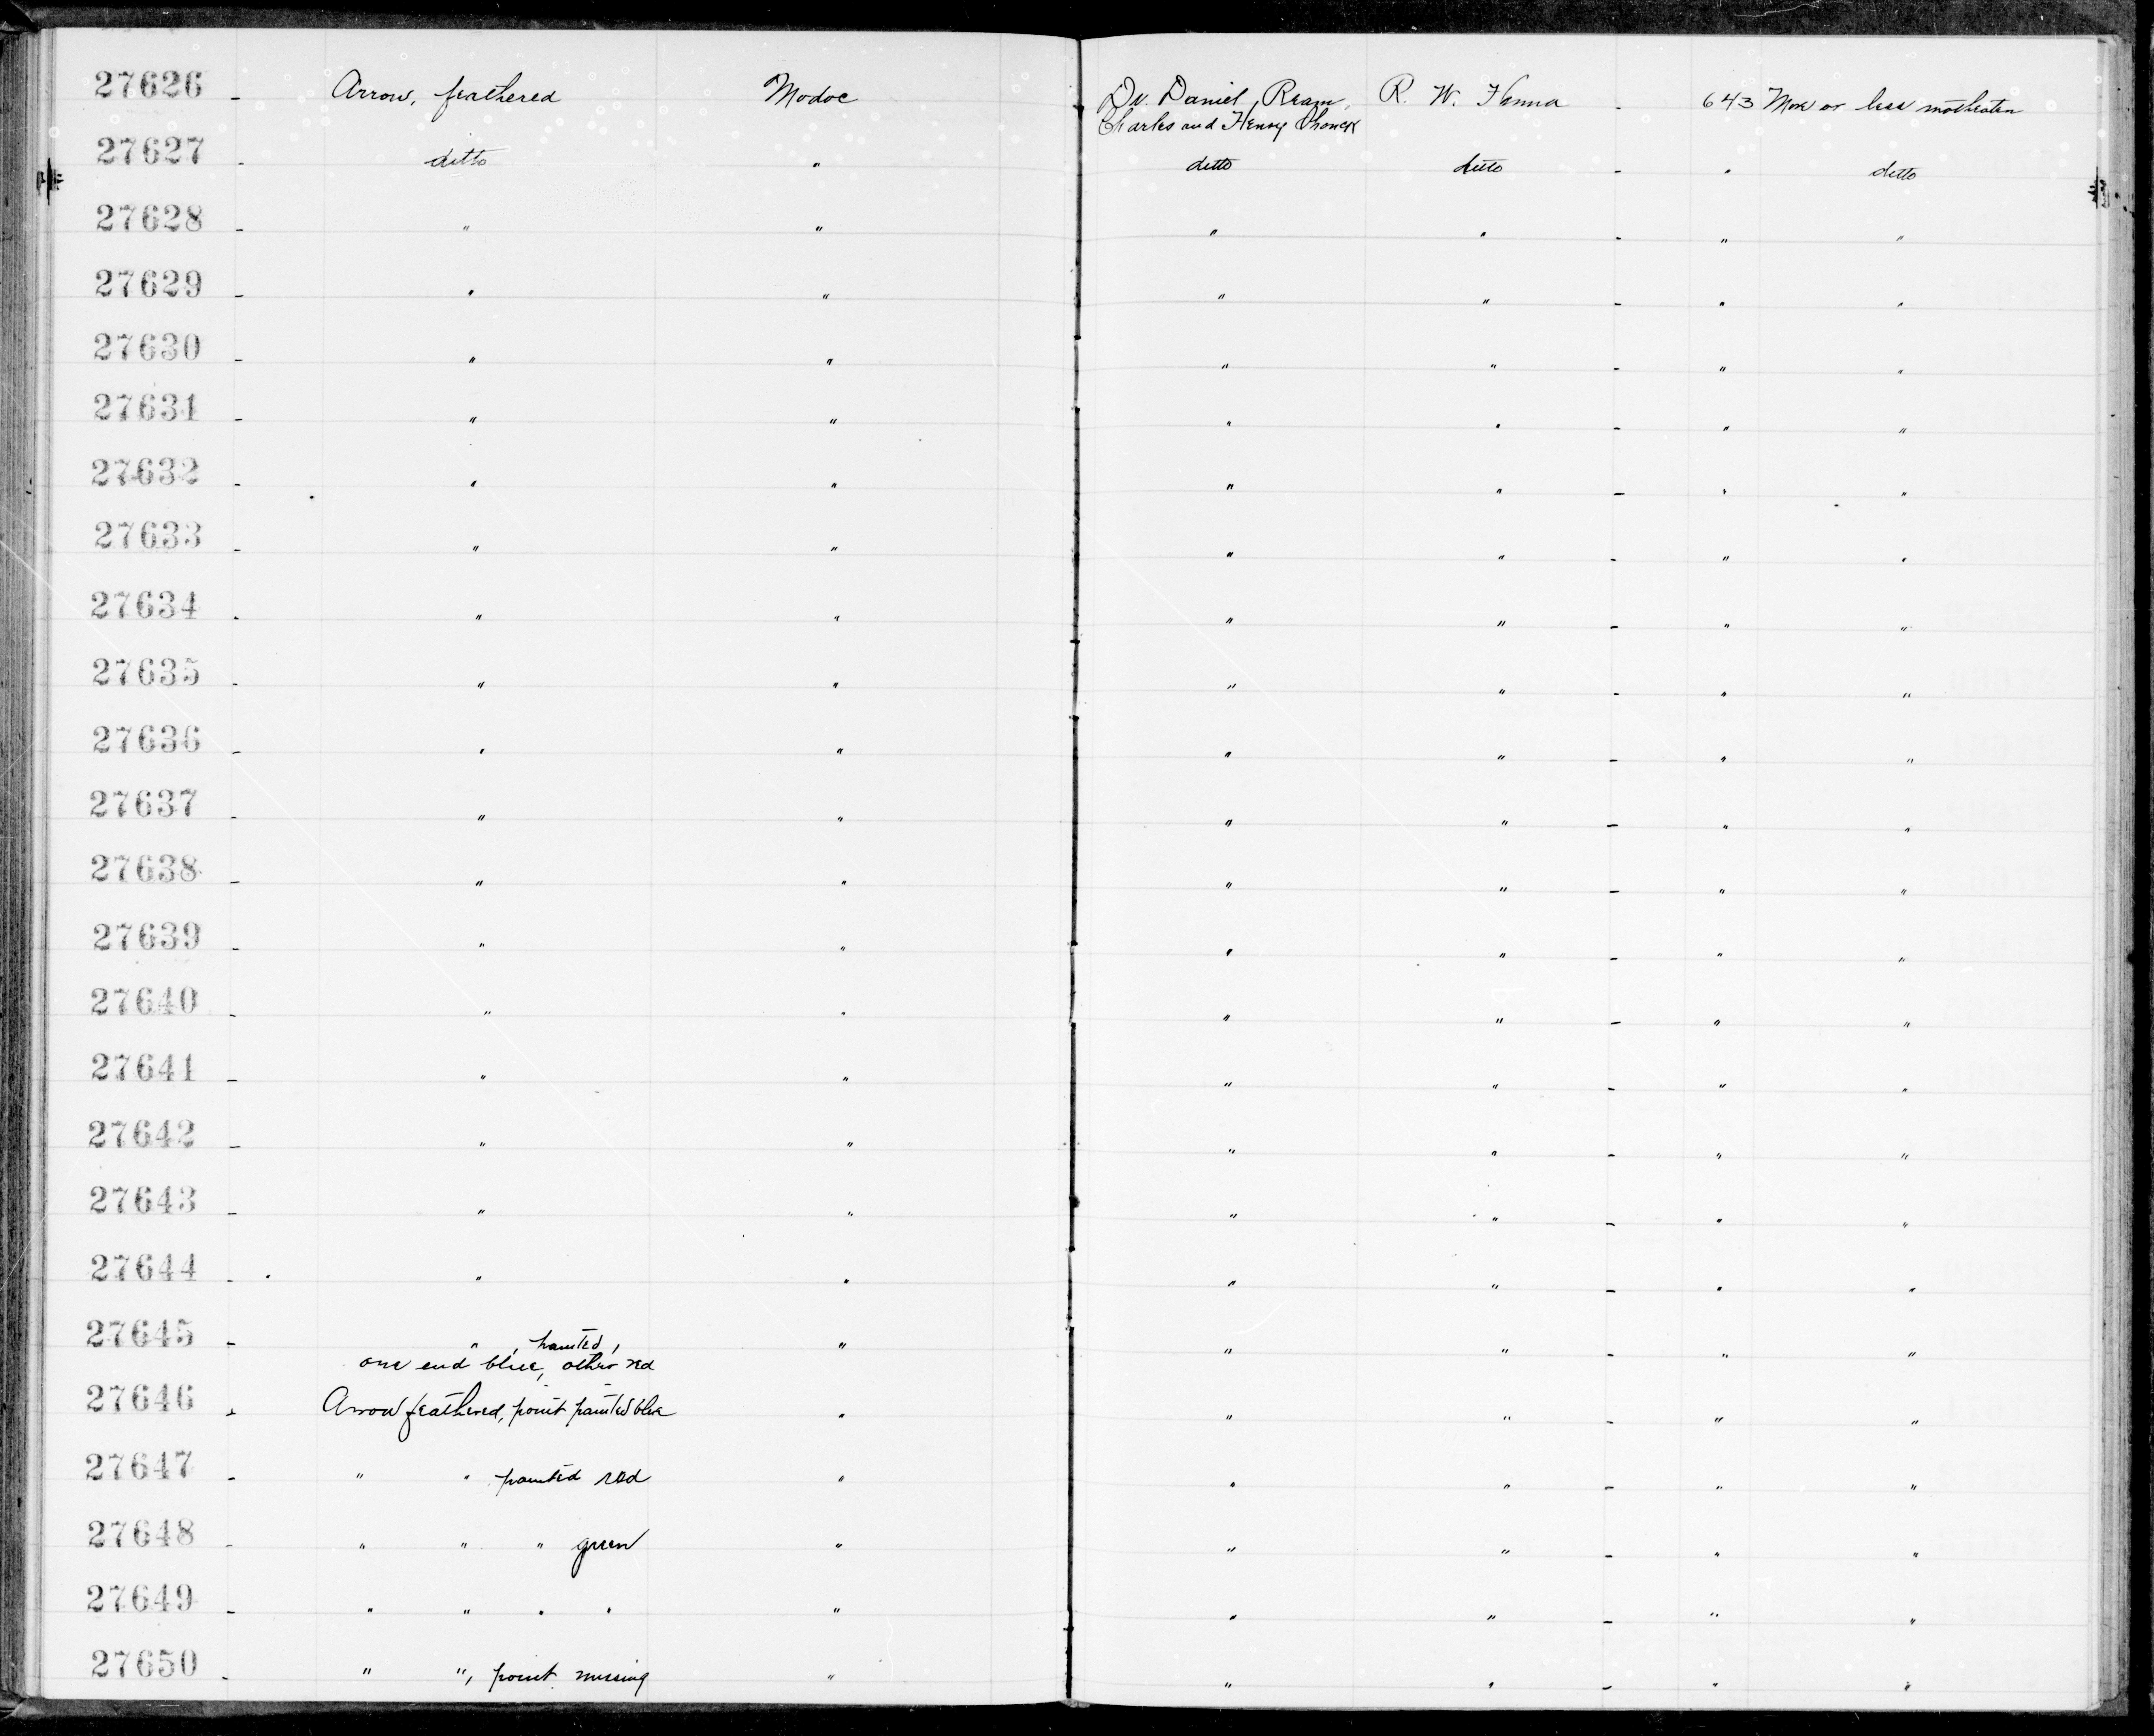 27626 - Arrow, feathered Modoc Dr. Daniel Ream, R. W. Hanna - 643 More or less motheaten
Charles and Henry
27627 - ditto " ditto ditto - " ditto
27628 - " " " " - " "
27629 - " " " " - " "
27630 - " " " " - " "
27631 - " " " " - " "
27632 - " " " " - " "
27633 - " " " " - " "
27634 - " " " " - " "
27635 - " " " " - " "
27636 - " " " " - " "
27637 - " " " " - " "
27638 - " " " " - " "
27639 - " " " " - " "
27640 - " " " " - " "
27641 - " " " " - " "
27642 - " " " " - " "
27643 - " " " " - " "
27644 - " " " " - " "
27645 - " , painted, " " " - " "
one end blue, other red
27646 - Arrow feathered, point painted blue " " " - " "
27647 - " " painted red " " " - " "
27648 - " " " green " " " - " "
27649 - " " " " " " " - " "
27650 - " ", point missing " " " - " "